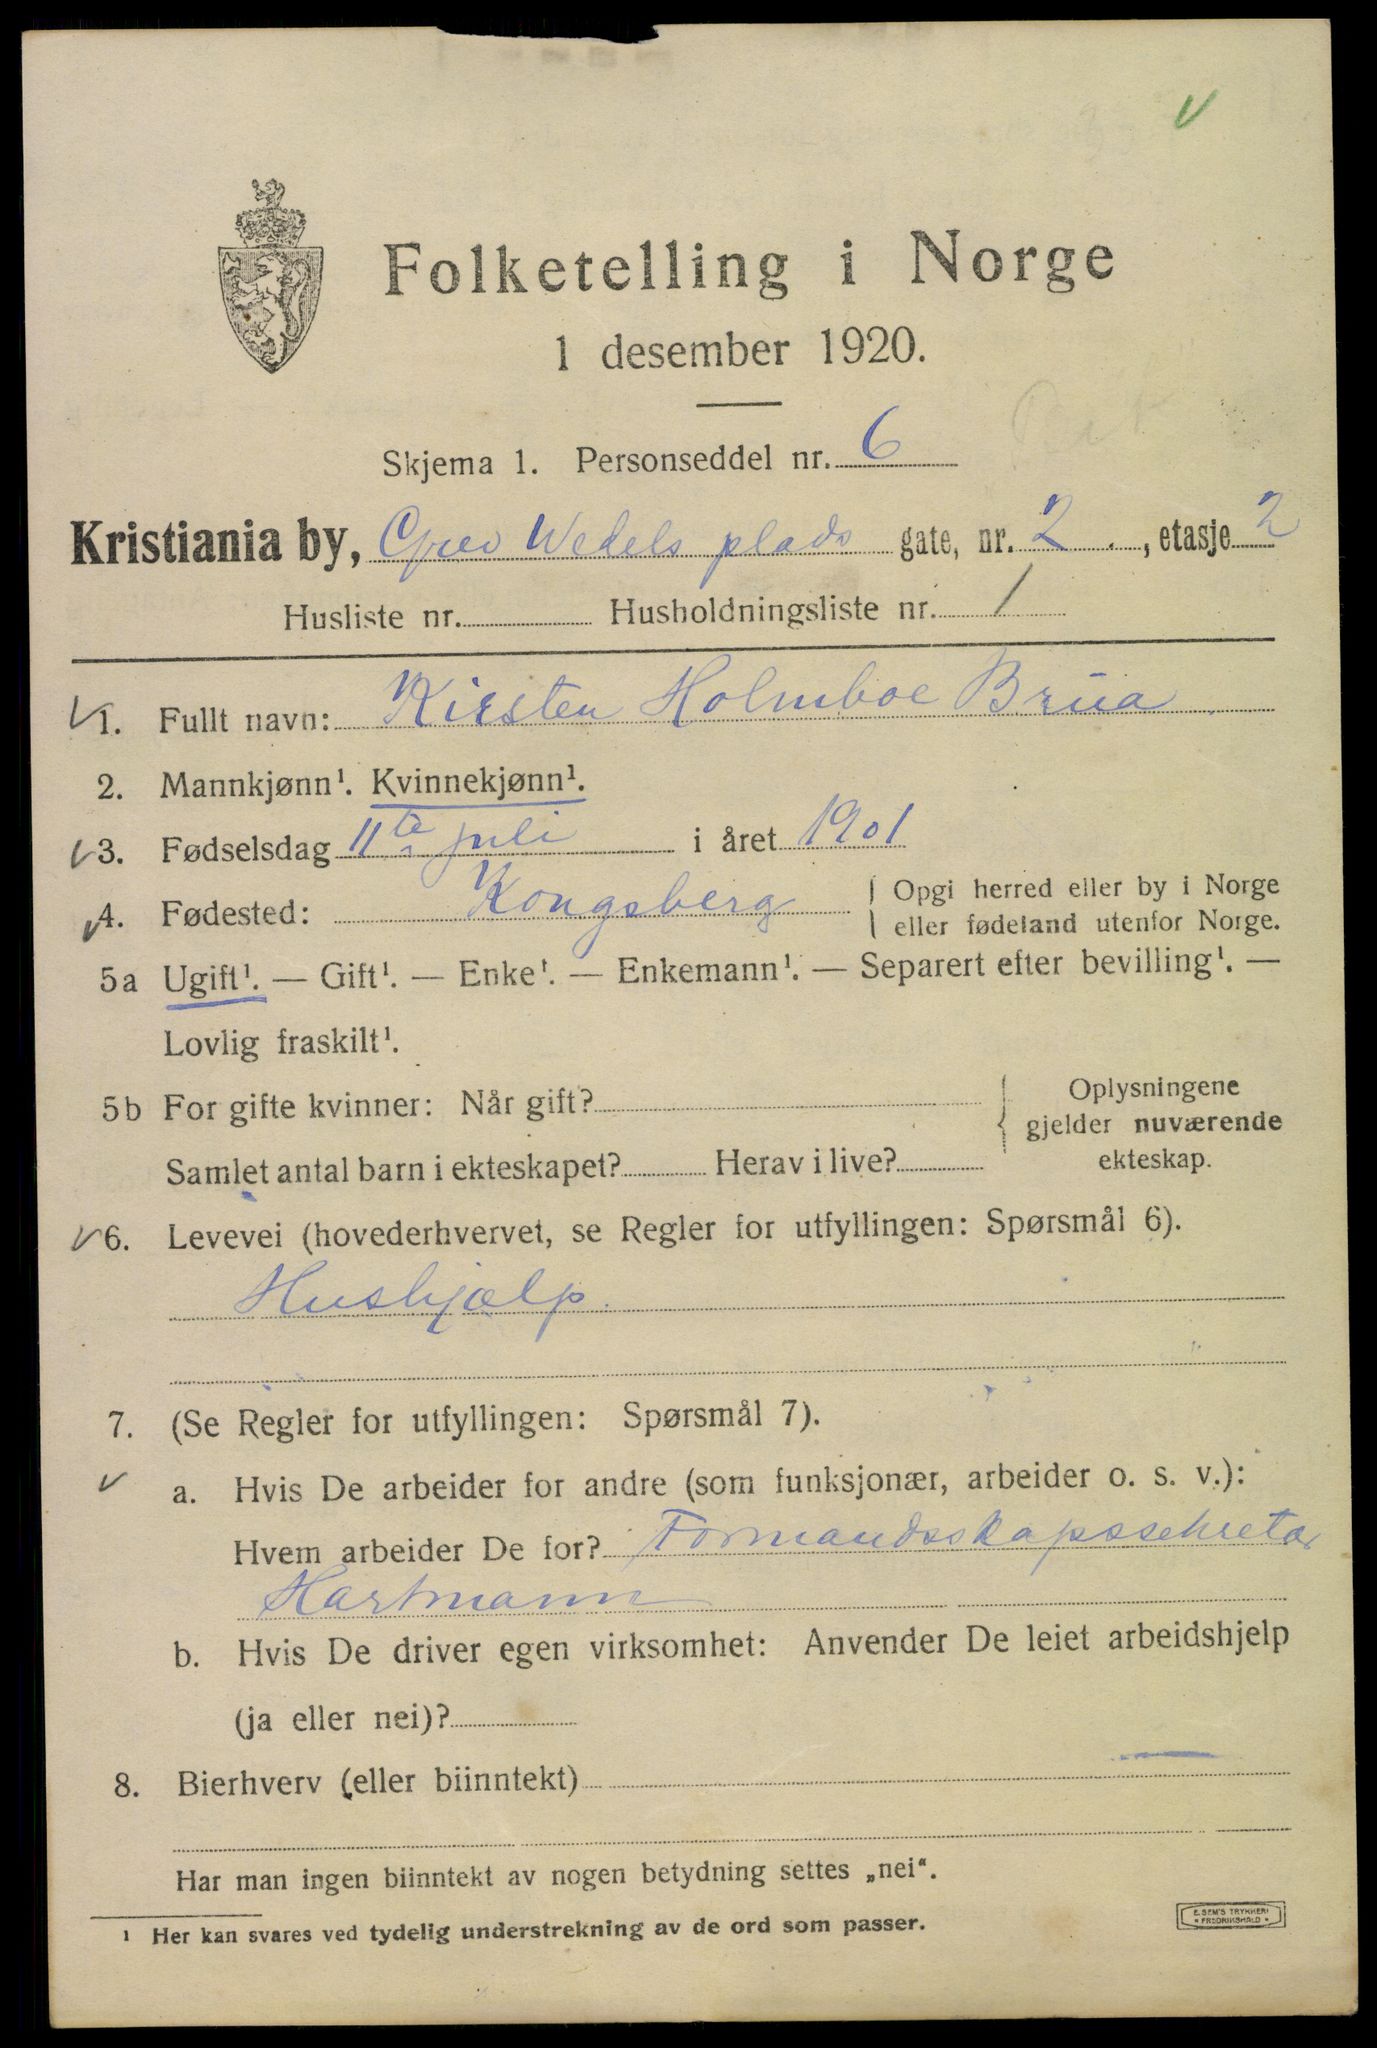 Folketelling i Norge
1 desember 1920.
Skjema 1. Personseddel nr. 6
Kristiania by, Grev Wedels plads gate, nr. 2 , etasje 2
Husliste nr. Husholdningsliste nr. 1
1. Fullt navn: Kirsten Holmboe Brua
2. Mannkjønn¹. Kvinnekjønn¹.
3. Fødselsdag 11te juli i året 1901
4. Fødested: Kongsberg Opgi herred eller by i Norge
eller fødeland utenfor Norge.
5a Ugift¹. — Gift¹. — Enke¹. — Enkemann¹. — Separert efter bevilling¹. —
Lovlig fraskilt¹.
5b For gifte kvinner: Når gift?
Samlet antal barn i ekteskapet? Herav i live?
Oplysningene
gjelder nuværende
ekteskap.
6. Levevei (hovederhvervet, se Regler for utfyllingen: Spørsmål 6).
Hushjælp.
7. (Se Regler for utfyllingen: Spørsmål 7).
a. Hvis De arbeider for andre (som funksjonær, arbeider o. s. v.):
Hvem arbeider De for? Formandsskapssekretær
Hartmann
b. Hvis De driver egen virksomhet: Anvender De leiet arbeidshjelp
(ja eller nei)?
8. Bierhverv (eller biinntekt) —
Har man ingen biinntekt av nogen betydning settes „nei“.
¹ Her kan svares ved tydelig understrekning av de ord som passer.
E. SEM'S TRYKKERI
* FREDRIKSHALD *